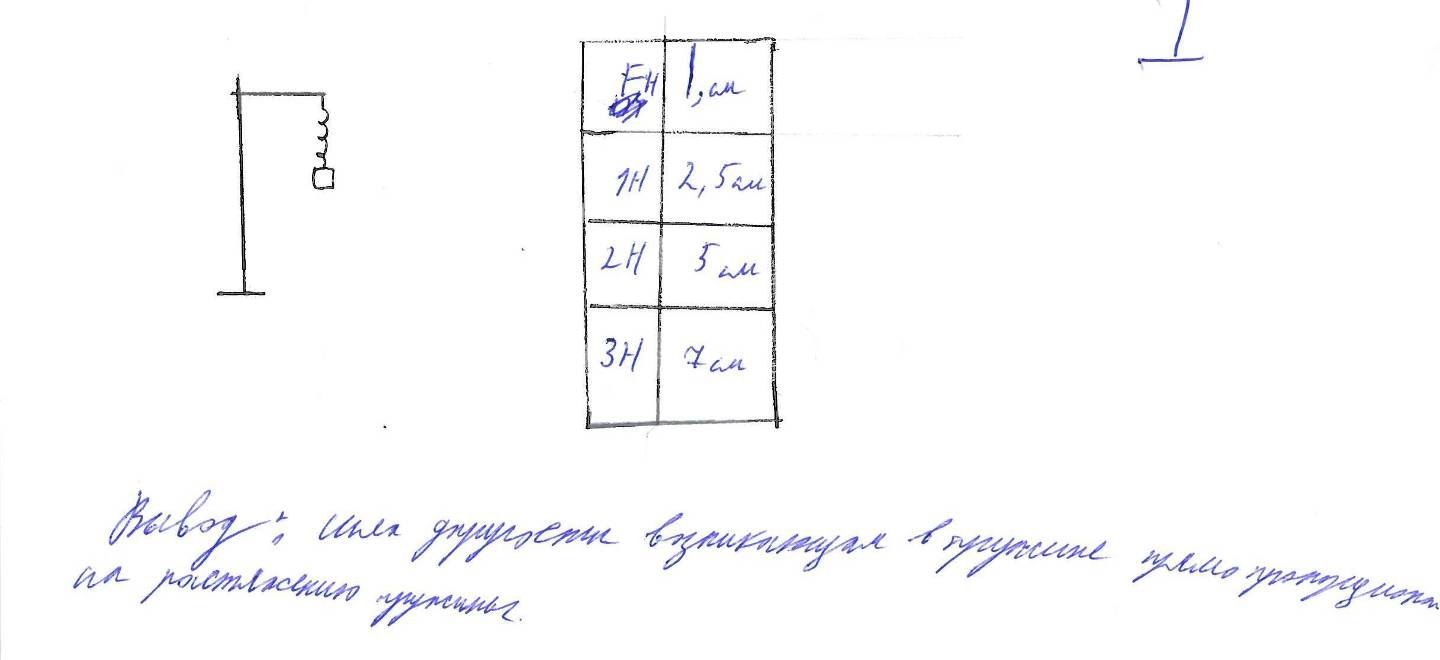 F Н l, см
1Н 2,5 см
2Н 5 см
3Н 7 см
Вывод: сила упругости возникающая в пружине прямо пропорциональ
на растяжению пружины.